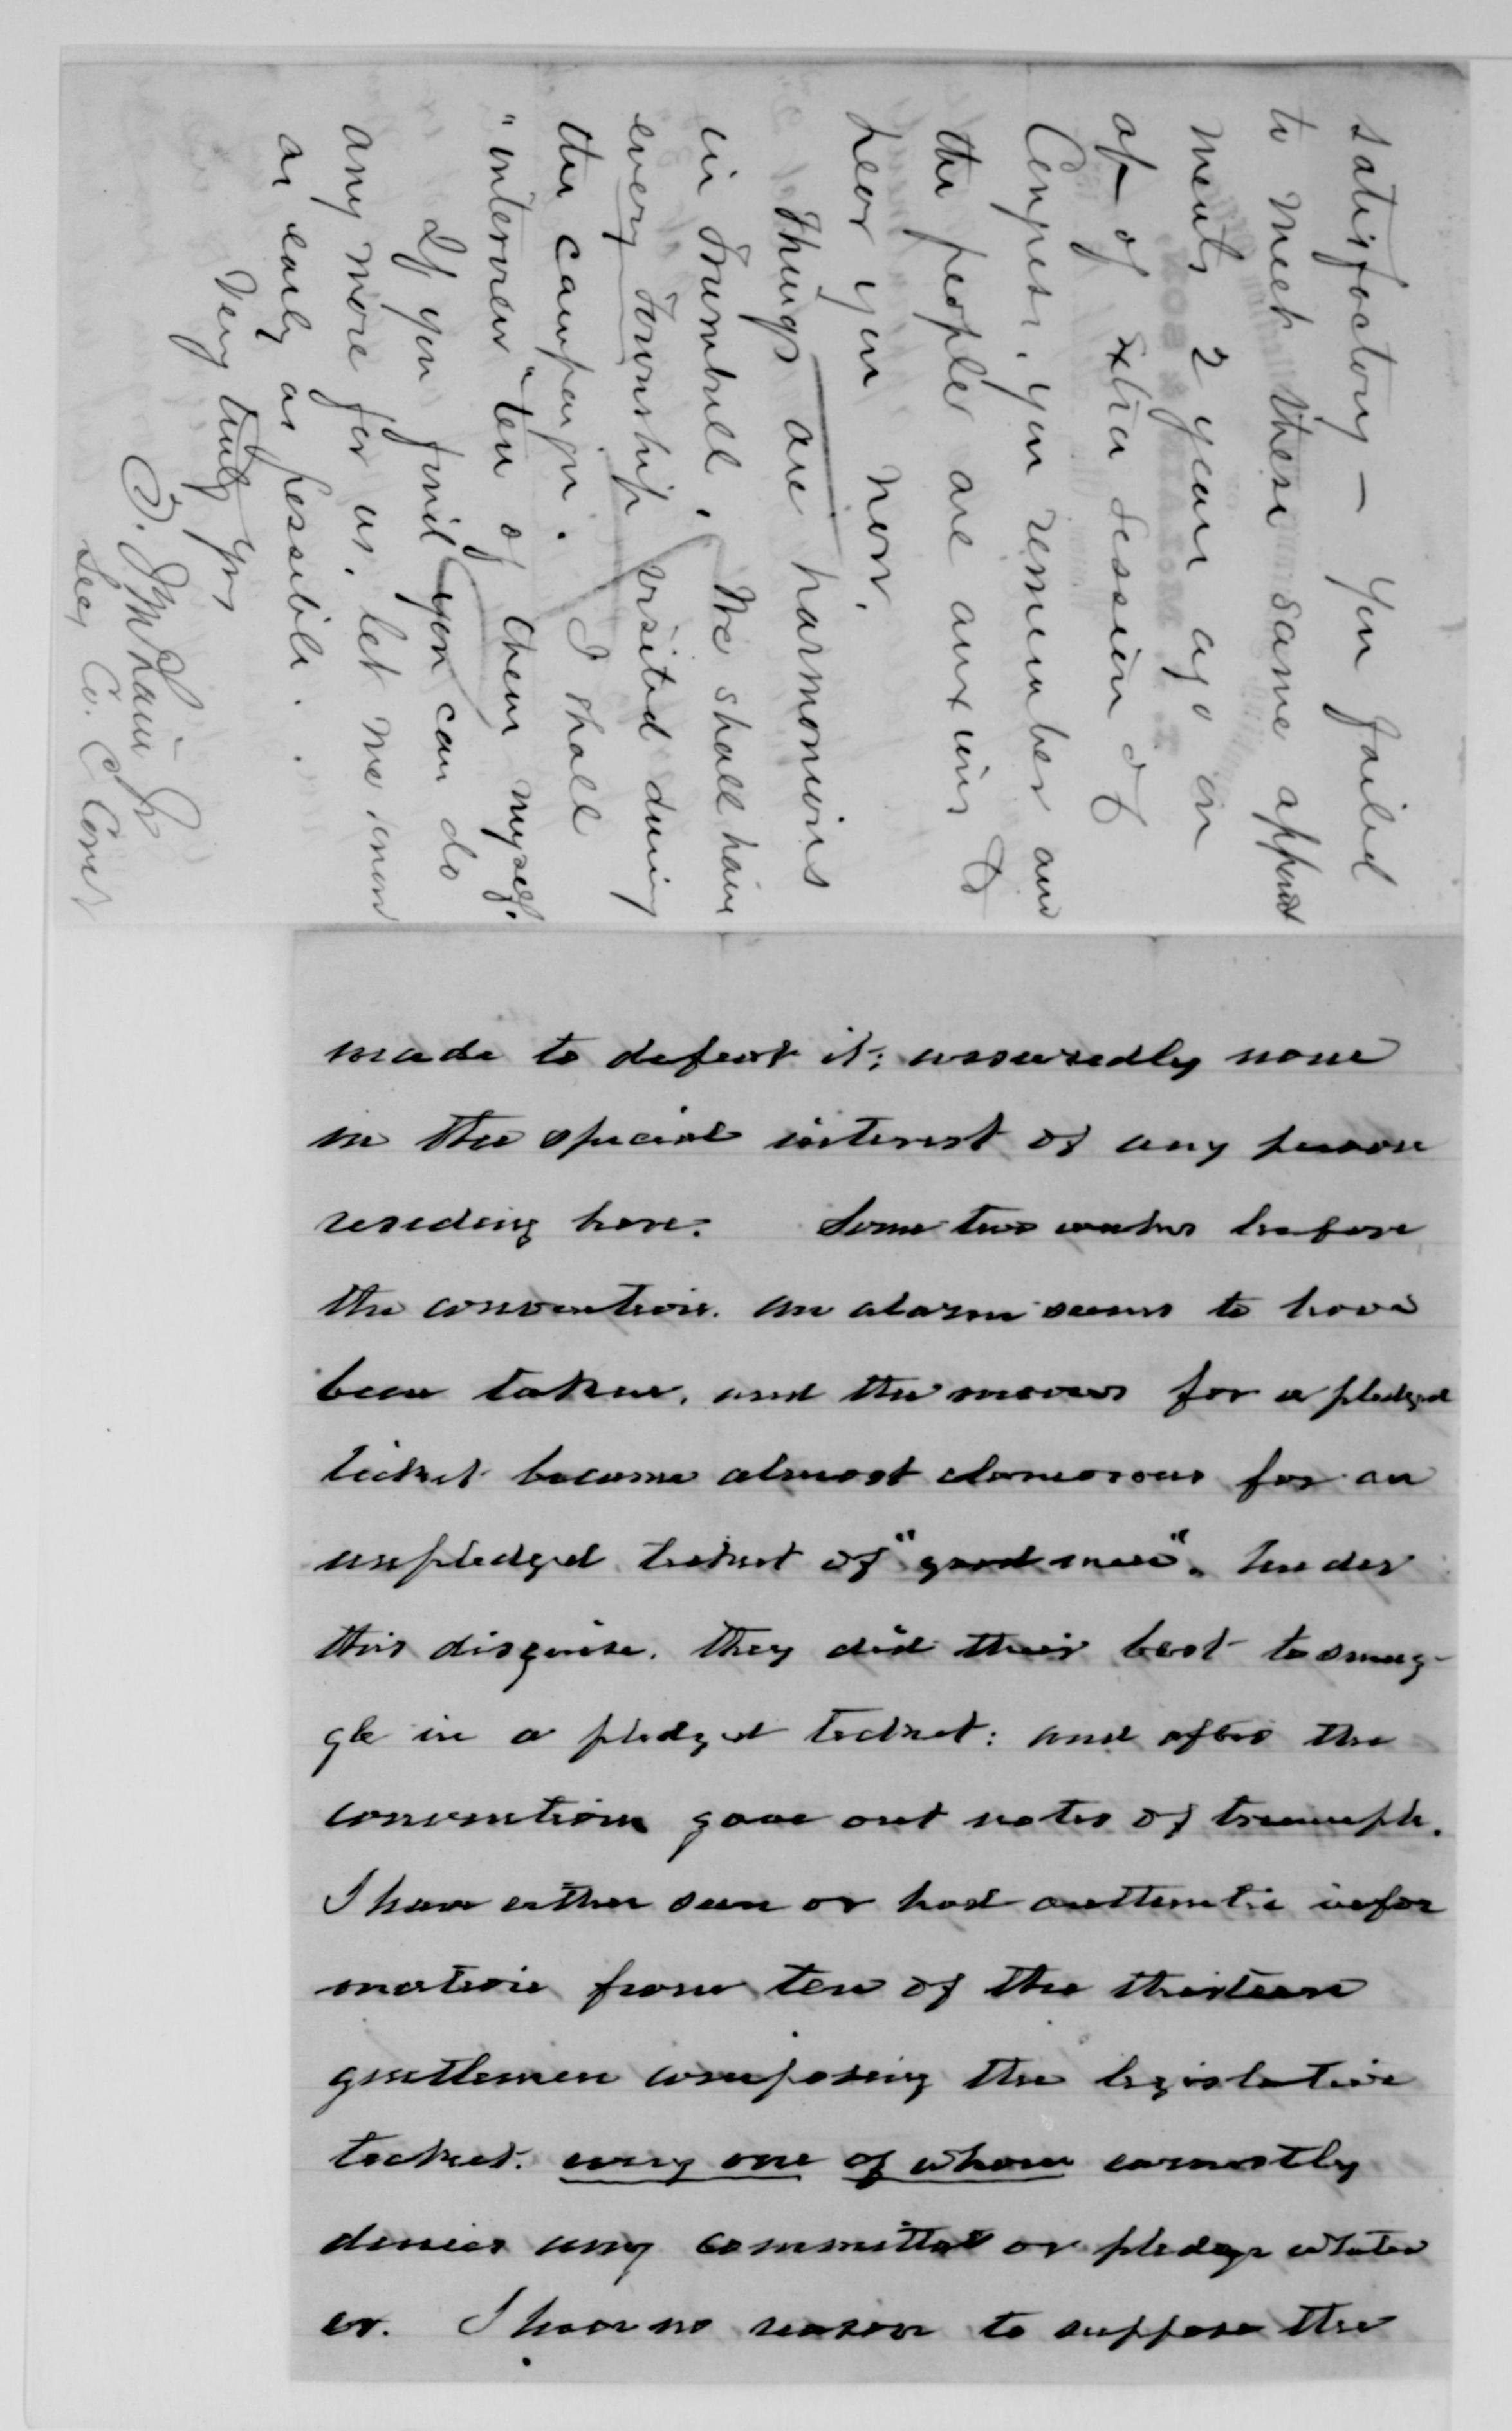 satisfactory — You failed
to meet these same appmt
ments 2 years ago on
a/c of Extra Session of
Congress. You remember and
the people are anxious to
hear you now.
Things are harmonious
in Trumbull. We shall have
every Township visited during
the campaign. I shall
"interview" ten of them myself.
If you find you can do
any more for us, let me know
as early as possible.
Very truly yrs
Sec. Co. Com
made to defeat it; assuredly none
in the special interest of any person
residing here. Some two weeks before
the convention. an alarm seems to have
been taken, and the movers for a pledged
ticket became almost clamorous for an
unpledged ticket of "good men". Under
this disguise, they did their best to smug-
gle in a pledged ticket: and after the
convention gave out notes of triumph.
I have either seen or had authentic infor
mation from ten of the thirteen
gentlemen composing the legislative
ticket. every one of whom earnestly
denies any committal or pledge whatev
er. I have no reason to suppose the